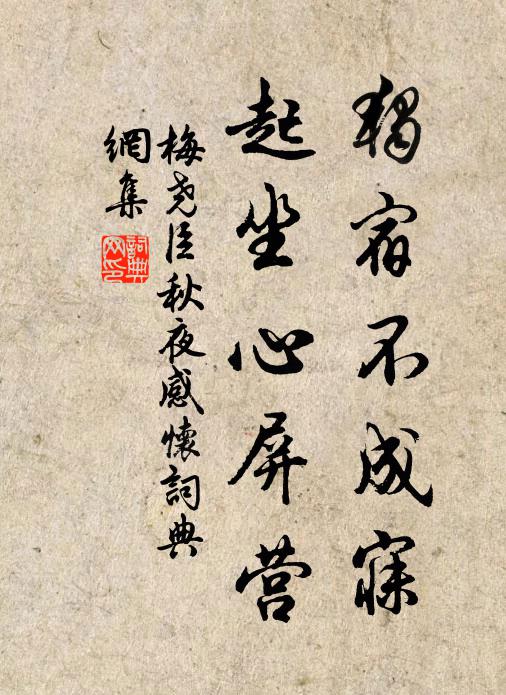 獨宿不成寐
起坐心屏营
梅尧臣秋夜感懷詞典
網集
詞典
网印